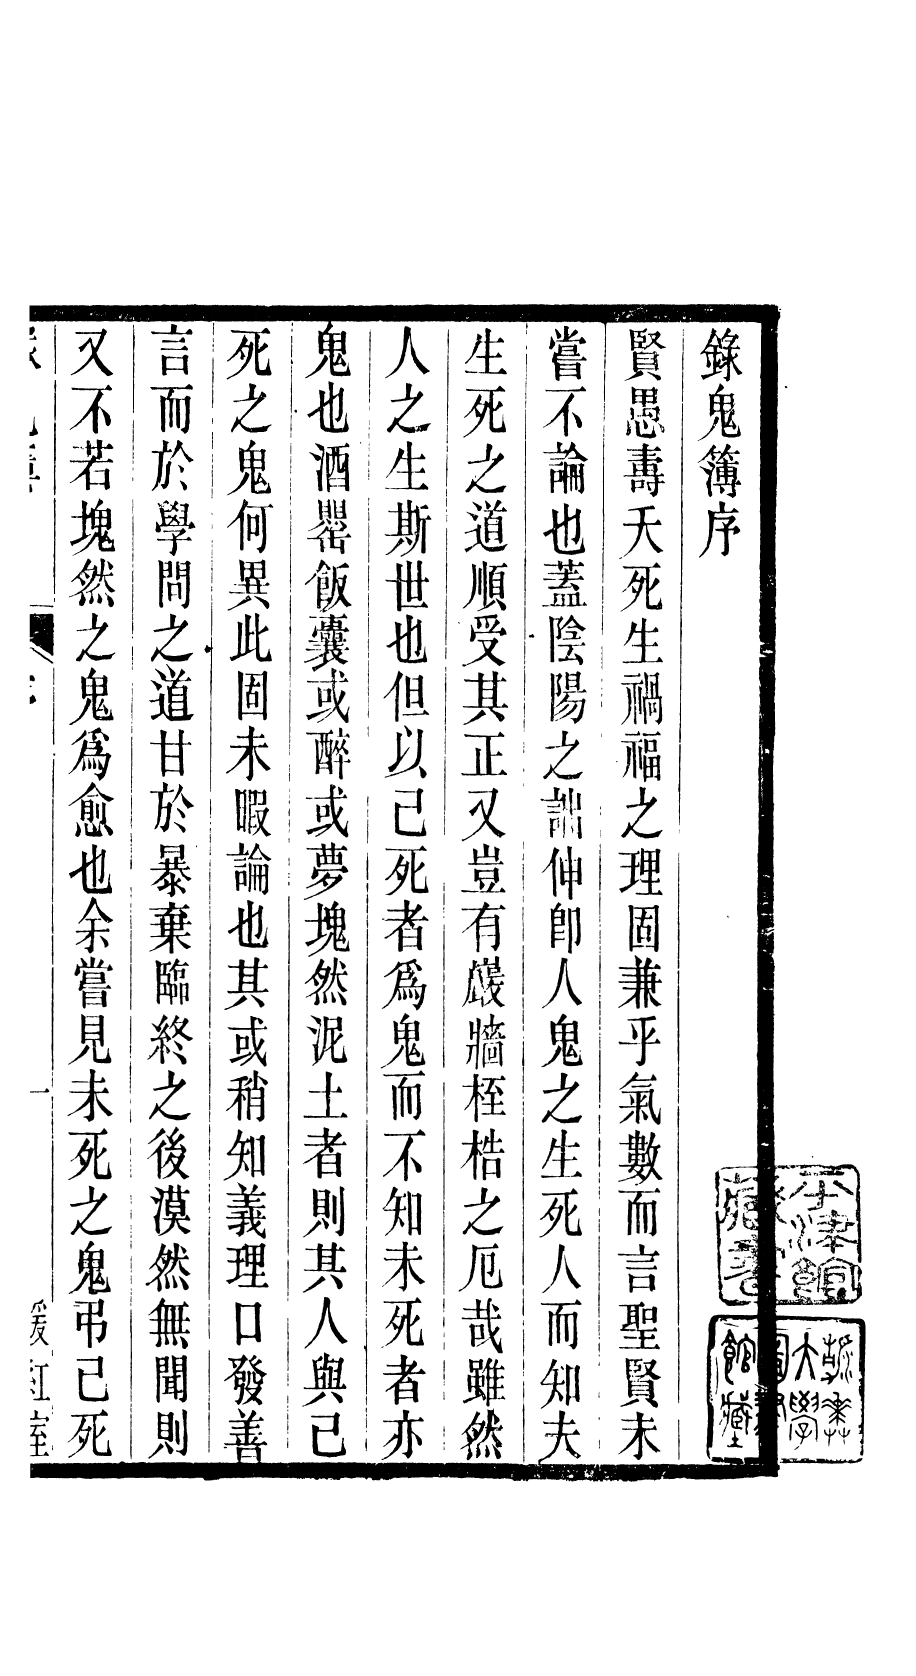 錄鬼簿序
賢愚壽夭死生禍福之理固兼乎氣數而言聖賢未
嘗不論也蓋陰陽之詘伸卽人鬼之生死人而知夫
生死之道順受其正又豈有巖牆桎梏之厄哉雖然
人之生斯世也但以已死者爲鬼而不知未死者亦
鬼也酒罌飯囊或醉或夢塊然泥土者則其人與已
死之鬼何異此固未暇論也其或稍知義理口發善
言而於學問之道甘於暴棄臨終之後漠然無聞則
又不若塊然之鬼爲愈也余嘗見未死之鬼弔已死
一
暖紅室
平津館
藏書
燕京
大學
圖書
館藏